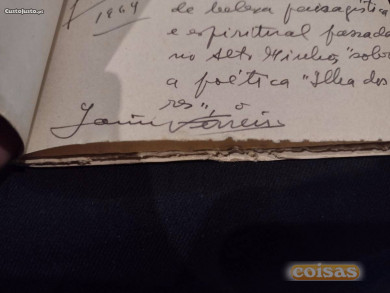 CustoJusto.pt
1964
de beleza paisagística
e espiritual passada
no Alto Minho "sobre
a poética "Ilha dos
res", o
coisas